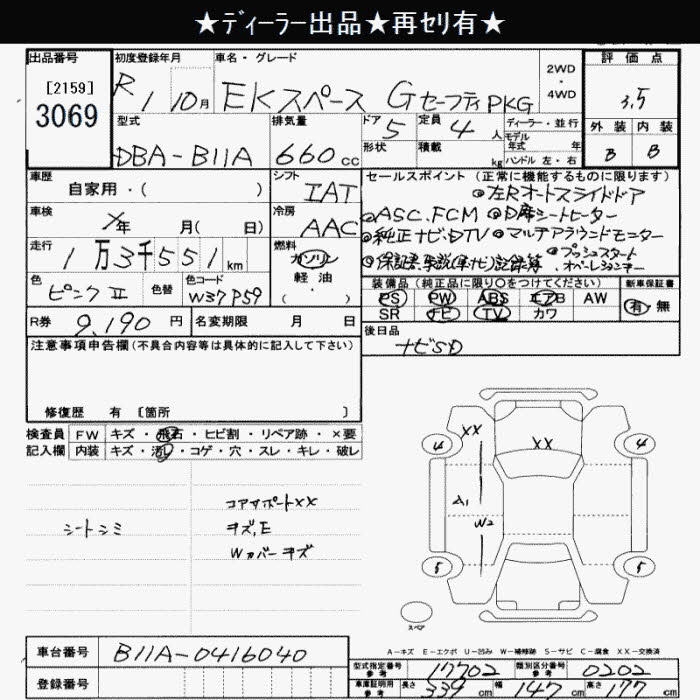 ★ディーラー出品★再セリ有★
出品番号
[2159]
3069
初度登録年月
R1 10月
車名・グレード
EKスペース GセーフティPKG
2WD・4WD
評価点
3.5
外装 内装
B B
型式
DBA-B11A
排気量
660cc
ドア 5
形状
定員 4人
積載 kg
ディーラー・並行
モデル年式 年式
ハンドル 左・右
車歴
自家用・( )
シフト
IAT
車検
年 月( 日)
冷房
AAC
走行
1万3千551km
燃料
ガソリン
軽油
( )
色
ピンクII
色替
色コード
W37P59
R券 9,190円
名変期限 月 日
セールスポイント(正常に機能するものに限ります)
◎左Rオートスライドドア
◎ASC.FCM ◎D席シートヒーター
◎純正ナビ.DTV ◎マルチアラウンドモニター
◎プッシュスタート
◎保証書.取説(車ナビ)記録簿 オペレーションキー
装備品(純正品に限り○をつけてください)
PS PW ABS エアB AW
SR ナビ TV カワ
新車保証書
有・無
後日品
ナビSD
注意事項申告欄(不具合内容等は具体的に記入して下さい)
修復歴 有 〔箇所 〕
検査員記入欄
FW キズ・飛石・ヒビ割・リペア跡・×要
内装 キズ・汚れ・コゲ・穴・スレ・キレ・破レ
シートシミ
コアサポートXX
キズ,E
Wカバーキズ
XX
XX
4
4
A1
W2
5
5
スペア
A-キズ E-エクボ U-凹み W-補修跡 S-サビ C-腐食 XX-交換済
車台番号 B11A-0416040
登録番号
型式指定番号 参考 17702
類別区分番号 参考 0202
車庫証明用 参考 長さ 339cm 幅 147cm 高さ 177cm